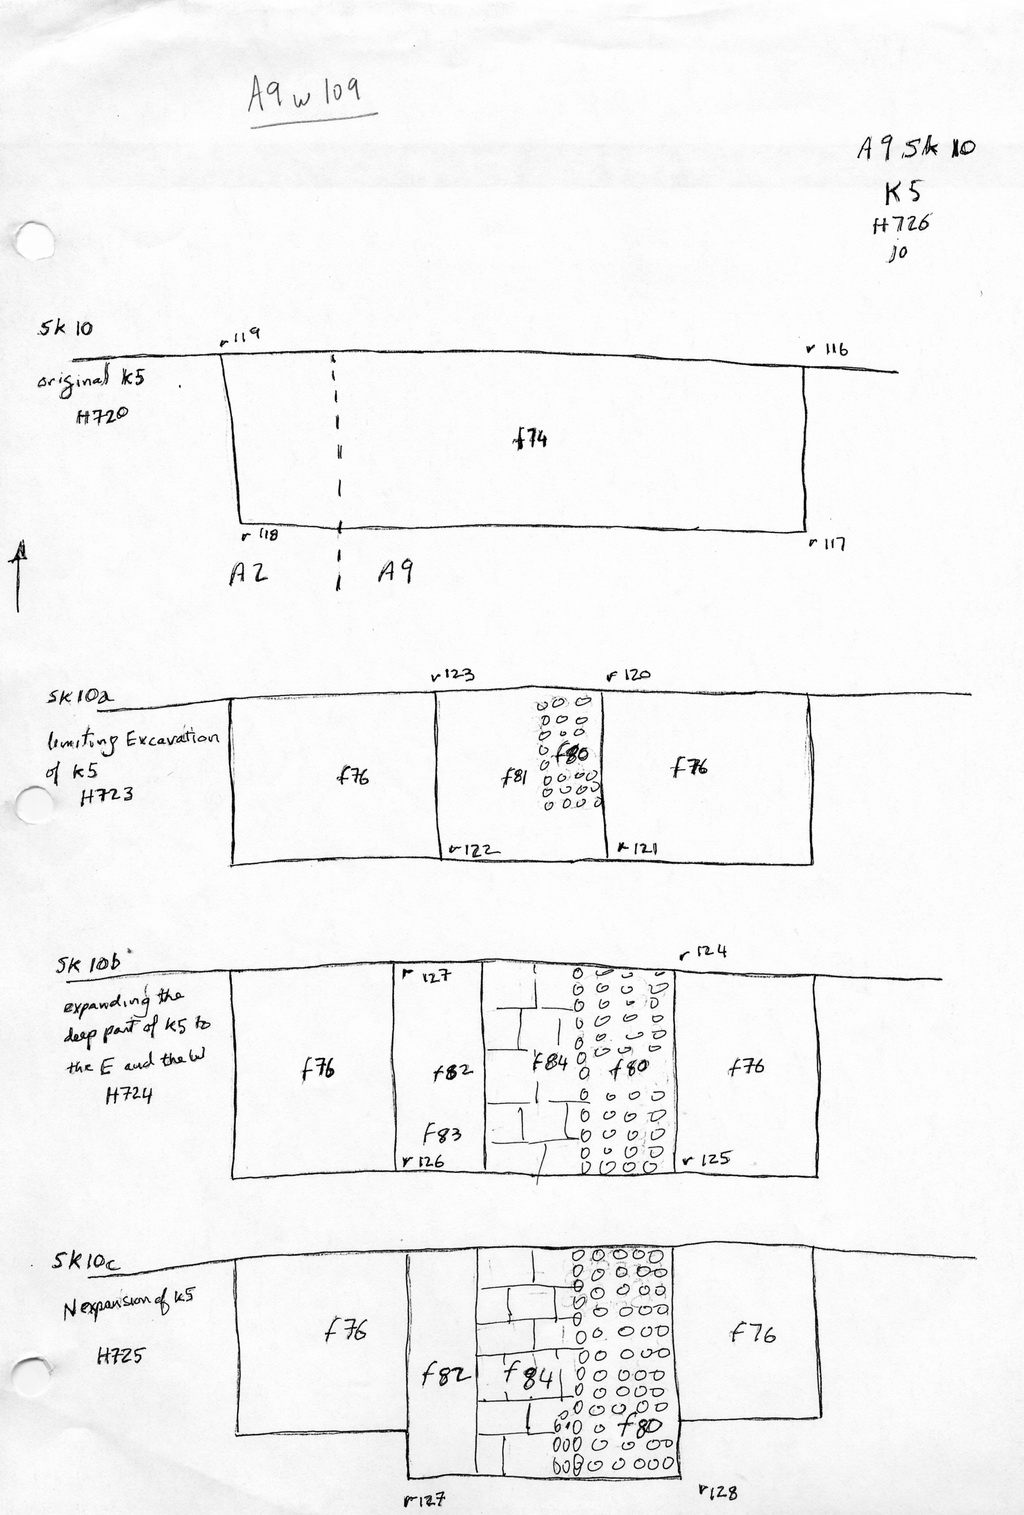 A9 w 109
A9 Sk 10
K5
H726
jo
Sk 10
r 119
r 116
original K5
H720
f74
r 118
r 117
A2 A9
r 123
r 120
Sk 10a
limiting Excavation
of K5
H723
f76
f81
f80
f76
r 122
r 121
r 124
Sk 10b
r 127
expanding the
deep part of K5 to
the E and the W
H724
f76
f82
f84
f80
f76
f83
r 126
r 125
Sk 10c
N expansion of K5
H725
f76
f82
f84
f80
f76
r 127
r 128